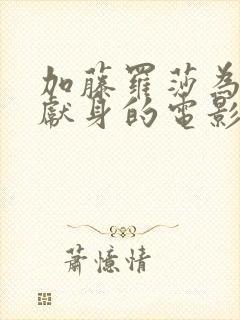 加藤羅莎為
獻身的電影
蕭憶情